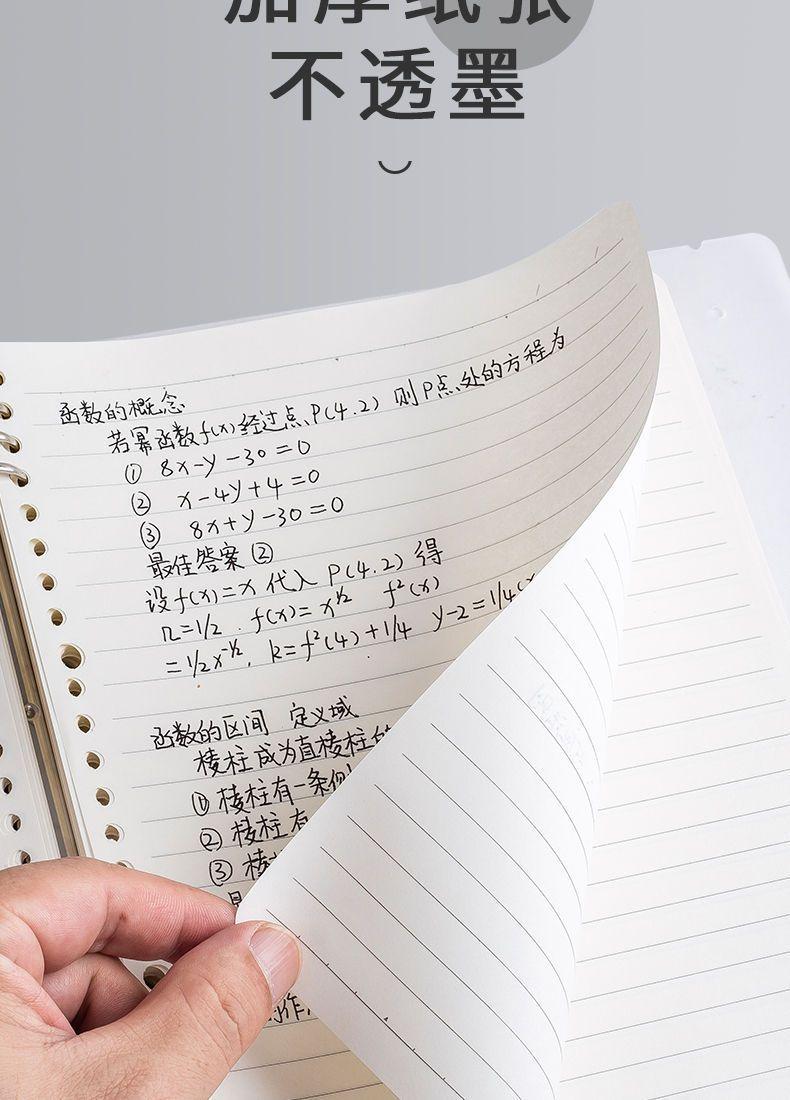 加厚纸张
不透墨
函数的概念
若幂函数f(x)经过点P(4.2) 则P点处的方程为
① 8x-y-30=0
② x-4y+4=0
③ 8x+y-30=0
最佳答案②
设f(x)=x代入P(4.2)得
n=1/2. f(x)=x^1/2 f²(x)
=1/2x^-1/2, k=f²(4)+1/4 y-2=1/4(x
函数的区间 定义域
棱柱成为直棱柱的
① 棱柱有一条侧
② 棱柱有
③ 棱
的作